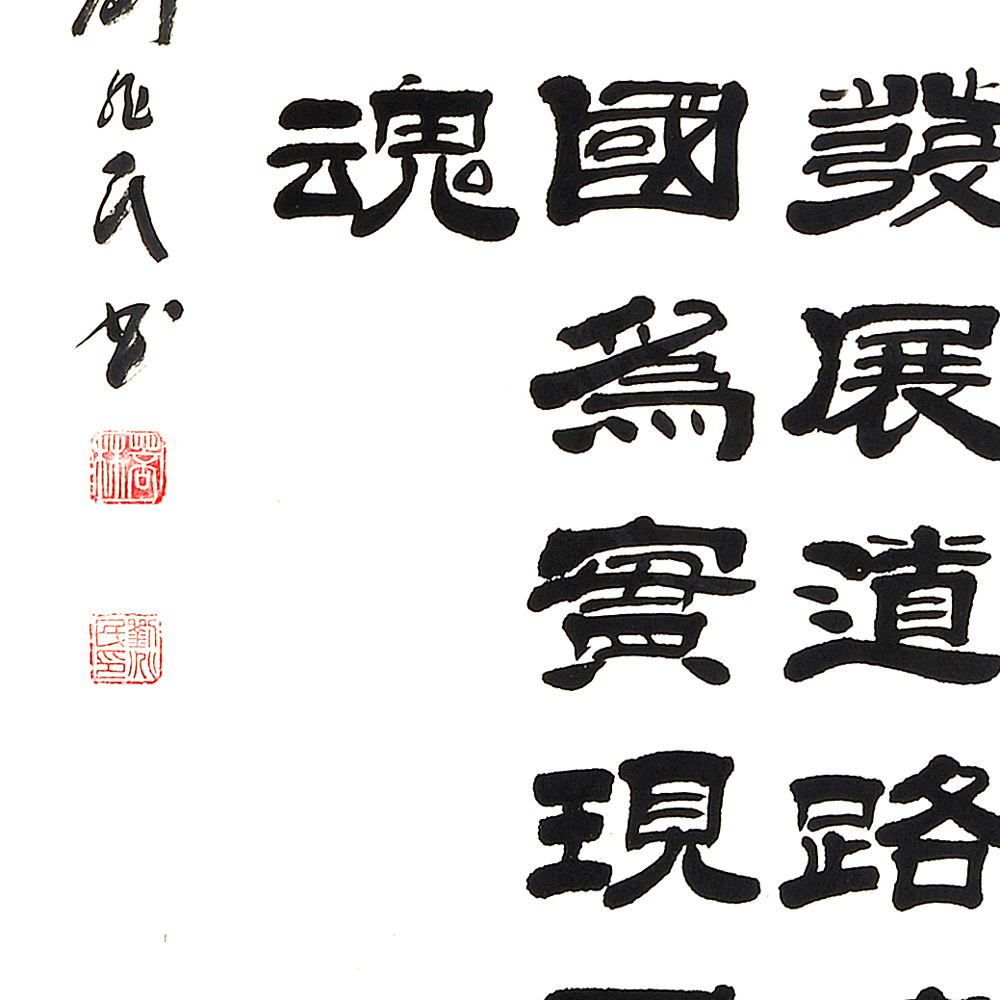 發展道路
國為實現
魂
兆民书
劉兆民印